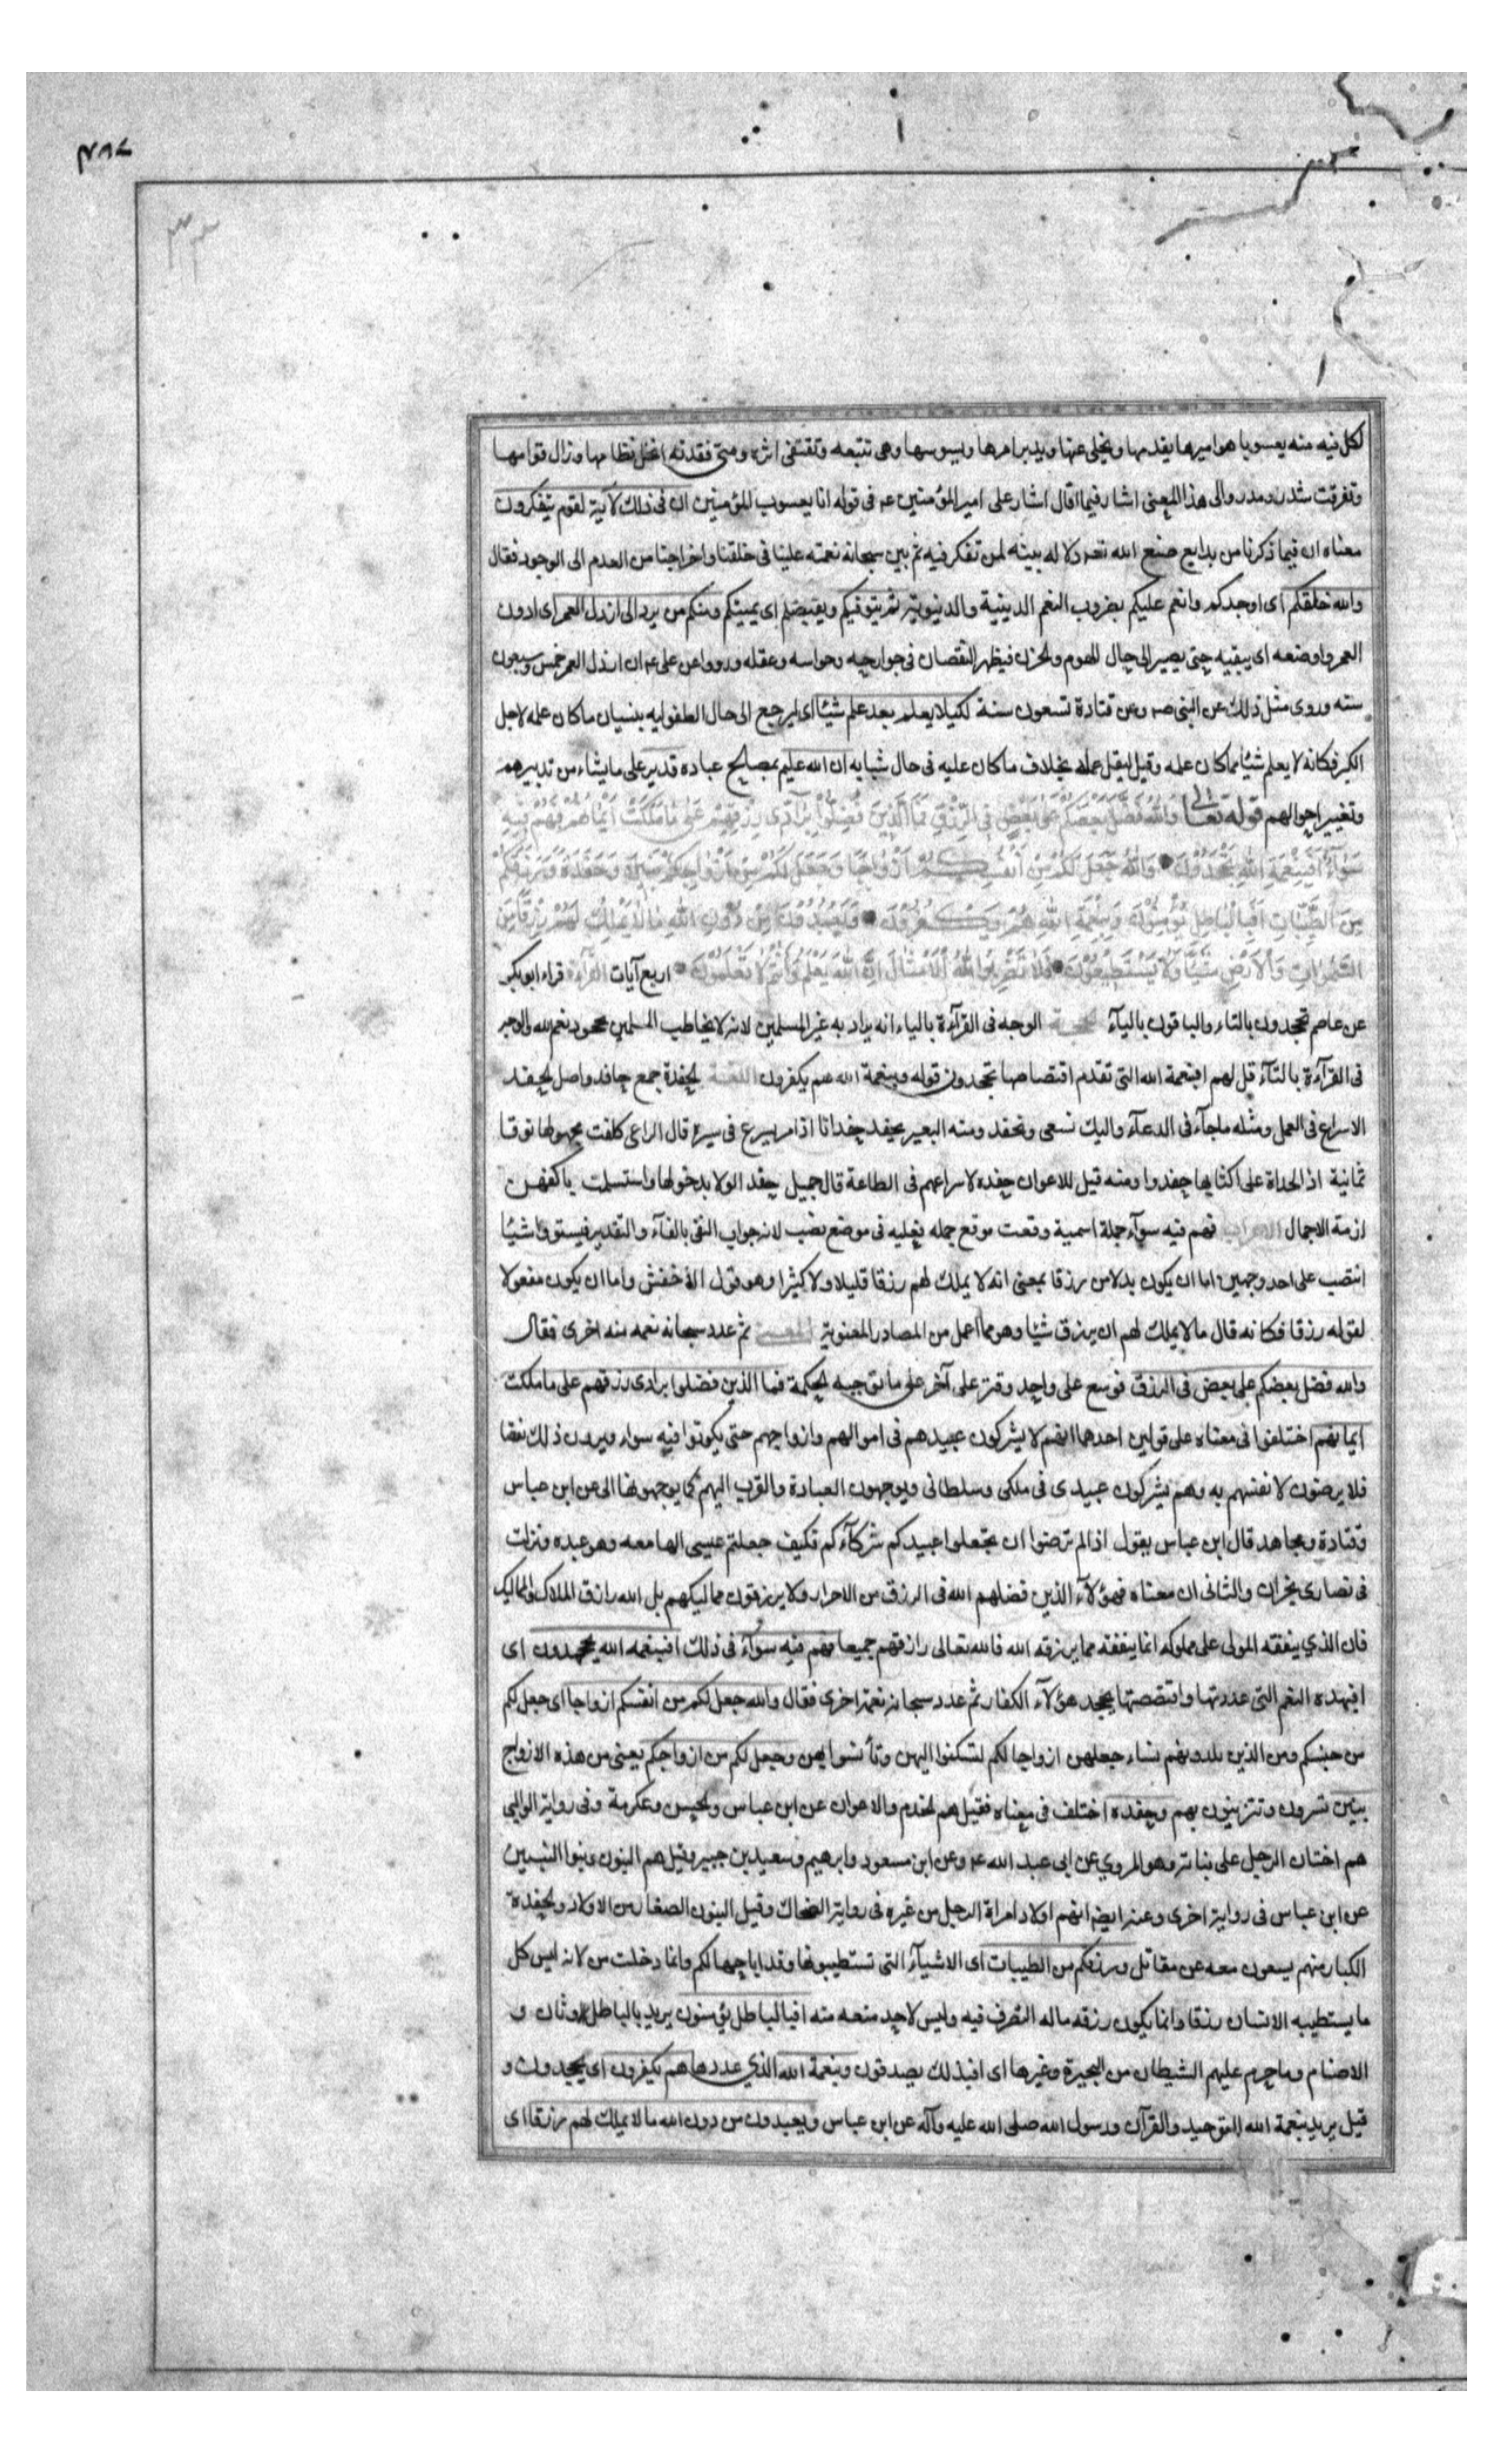 ٧٨٣
٣٣
لكل فيه منه يعسوبا هو اميرها يقدمها ويحامى عنها ويدبر امرها ويسوسها وهى تتبعه وتقتفى اثره ومتى فقدته اختل نظامها وزال قوامها
وتفرقت شذر ومذر والى هذا المعنى اشار فيما قال اشار على امير المؤمنين عه فى قوله انا يعسوب المؤمنين ان فى ذلك لآية لقوم يتفكرون
معناه ان فيما ذكرنا من بدايع صنع الله تعه دلاله بينه لمن تفكر فيه ثم بين سبحانه نعمته علينا فى خلقنا واخراجنا من العدم الى الوجود فقال
والله خلقكم اى اوجدكم وانعم عليكم بضروب النعم الدينية والدنيوية ثم يتوفيكم ويقبضكم اى يميتكم ومنكم من يرد الى ارذل العمر اى ادون
العمر واوضعه اى يبقيه حتى يصير الى حال الهرم والخرف فيظهر النقصان فى جوارحه وحواسه وعقله ورووا عن على عه ان ارذل العمر خمس وسبعون
سنه وروى مثل ذلك عن النبى صه وعن قتادة تسعون سنة لكيلا يعلم بعد علم شيئا اى ليرجع الى حال الطفوليه بنسيان ما كان علمه لاجل
الكبر فكانه لا يعلم شيئا مما كان علمه وقيل ليقل عمله بخلاف ما كان عليه فى حال شبابه ان الله عليم بمصالح عباده قدير على ما يشاء من تدبيرهم
وتغيير احوالهم قوله تعالى وَاللهُ فَضَّلَ بَعْضَكُمْ عَلَى بَعْضٍ فِى الرِّزْقِ فَمَا الَّذِينَ فُضِّلُوا بِرَادِّى رِزْقِهِمْ عَلَى مَا مَلَكَتْ أَيْمَانُهُمْ فَهُمْ فِيهِ
سَوَاءٌ أَفَبِنِعْمَةِ اللهِ يَجْحَدُونَ وَاللهُ جَعَلَ لَكُمْ مِنْ أَنْفُسِكُمْ أَزْوَاجًا وَجَعَلَ لَكُمْ مِنْ أَزْوَاجِكُمْ بَنِينَ وَحَفَدَةً وَرَزَقَكُمْ
مِنَ الطَّيِّبَاتِ أَفَبِالْبَاطِلِ يُؤْمِنُونَ وَبِنِعْمَةِ اللهِ هُمْ يَكْفُرُونَ وَيَعْبُدُونَ مِنْ دُونِ اللهِ مَا لَا يَمْلِكُ لَهُمْ رِزْقًا مِنَ
السَّمٰوَاتِ وَالْأَرْضِ شَيْئًا وَلَا يَسْتَطِيعُونَ فَلَا تَضْرِبُوا لِلّٰهِ الْأَمْثَالَ إِنَّ اللهَ يَعْلَمُ وَأَنْتُمْ لَا تَعْلَمُونَ اربع آيات القرآءة قراء ابو بكر
عن عاصم تجحدون بالتاء والباقون باليآء الحجة الوجه فى القرآءة بالياء انه يراد به غير المسلمين لانه لا يخاطب المسلمين بجحود نعم الله والوجه
فى القرآءة بالتآء قل لهم افبنعمة الله التى تقدم اقتصاصها تجحدون قوله وبنعمة الله هم يكفرون اللغة الحفدة جمع حافد واصل الحفد
الاسراع فى العمل ومثله ما جآء فى الدعآء واليك نسعى ونحفد ومنه البعير يحفد حفدانا اذا مر يسرع فى سيره قال الراعى كلفت مجهولها نوقا
ثمانية اذ الحداة على اكتايها حفدوا ومنه قيل للاعوان حفده لاسراعهم فى الطاعة قال جميل حفد الولايد حولها واستسلمت باكفهن
ازمة الاجمال الاعراب فهم فيه سوآء جملة اسمية وقعت موقع جمله فعليه فى موضع نصب لانه جواب النفى بالفآء والتقدير فيستووا شيئا
انتصب على احد وجهين اما ان يكون بدلا من رزقا بمعنى انه لا يملك لهم رزقا قليلا ولا كثيرا وهو قول الاخفش واما ان يكون مفعولا
لقوله رزقا فكانه قال ما لا يملك لهم ان يرزق شيئا وهو مما اعمل من المصادر المعنوية المعنى ثم عدد سبحانه نعمه منه اخرى فقال
والله فضل بعضكم على بعض فى الرزق فوسع على واحد وقتر على آخر على ما توجبه الحكمة فما الذين فضلوا برادى رزقهم على ما ملكت
ايمانهم اختلفوا فى معناه على قولين احدهما انهم لا يشركون عبيدهم فى اموالهم وازواجهم حتى يكونوا فيه سواء ويرون ذلك نقصا
فلا يرضون لانفسهم به وهم يشركون عبيدى فى ملكى وسلطانى ويوجهون العبادة والقرب اليهم كما يوجهونها الى عن ابن عباس
وقتادة ومجاهد قال ابن عباس يقول اذا لم ترضوا ان تجعلوا عبيدكم شركآءكم فكيف جعلتم عيسى الها معه وهو عبده ونزلت
فى نصارى نجران والثانى ان معناه فهؤلآء الذين فضلهم الله فى الرزق من الاحرار ولا يرزقون مماليكهم بل الله رازق الملاك والمماليك
فان الذي ينفقه المولى على مملوكه انما ينفقه مما يرزقه الله فالله تعالى رازقهم جميعا فهم فيه سوآء فى ذلك افبنعمه الله يجحدون اى
افبهذه النعم التى عددتها واقتصصتها يجحد هؤلآء الكفار ثم عدد سبحانه نعمة اخرى فقال والله جعل لكم من انفسكم ازواجا اى جعل لكم
من جنسكم ومن الذين تلدونهم نساء جعلهن ازواجا لكم لتسكنوا اليهن وتأنسوا بهن وجعل لكم من ازواجكم يعنى من هذه الازواج
بنين تسرون وتتزينون بهم وحفده اختلف فى معناه فقيل هم الخدم والاعوان عن ابن عباس والحسن وعكرمة وفى رواية الوالبي
هم اختان الرجل على بناته وهو المروي عن ابى عبد الله عه وعن ابن مسعود وابرهيم وسعيد بن جبير وقيل هم البنون وبنوا البنين
عن ابن عباس فى رواية اخرى وعنه ايضه انهم اولاد امراة الرجل من غيره فى رواية الضحاك وقيل البنون الصغار من الاولاد والحفدة
الكبار منهم يسعون معه عن مقاتل ورزقكم من الطيبات اى الاشيآء التى تستطيبونها وقد اباحها لكم وانما دخلت من لانه ليس كل
ما يستطيبه الانسان رزقا وانما يكون رزقه ماله التصرف فيه وليس لاحد منعه منه افبالباطل يؤمنون يريد بالباطل الاوثان و
الاصنام وما حرم عليهم الشيطان من البحيرة وغيرها اى افبذلك يصدقون وبنعمة الله الذي عددها هم يكفرون اى يجحدون و
قيل يريد بنعمة الله التوحيد والقرآن ورسول الله صلى الله عليه وآله عن ابن عباس ويعبدون من دون الله ما لا يملك لهم رزقا اى